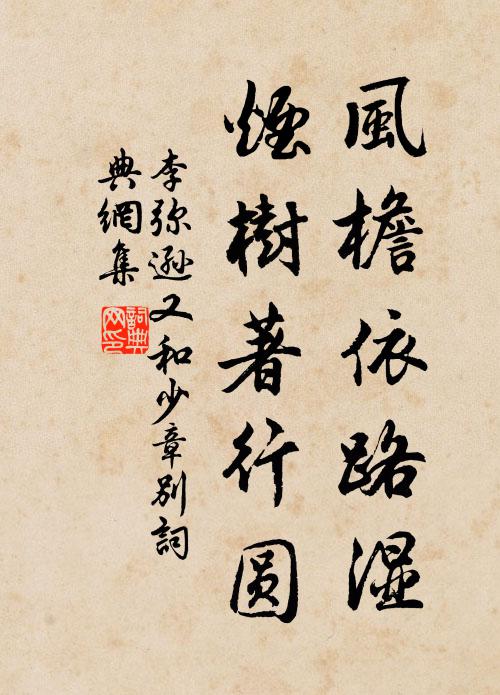 風檐依路濕
煙樹著行圆
李弥遜又和少章别詞
典網集
詞典網印